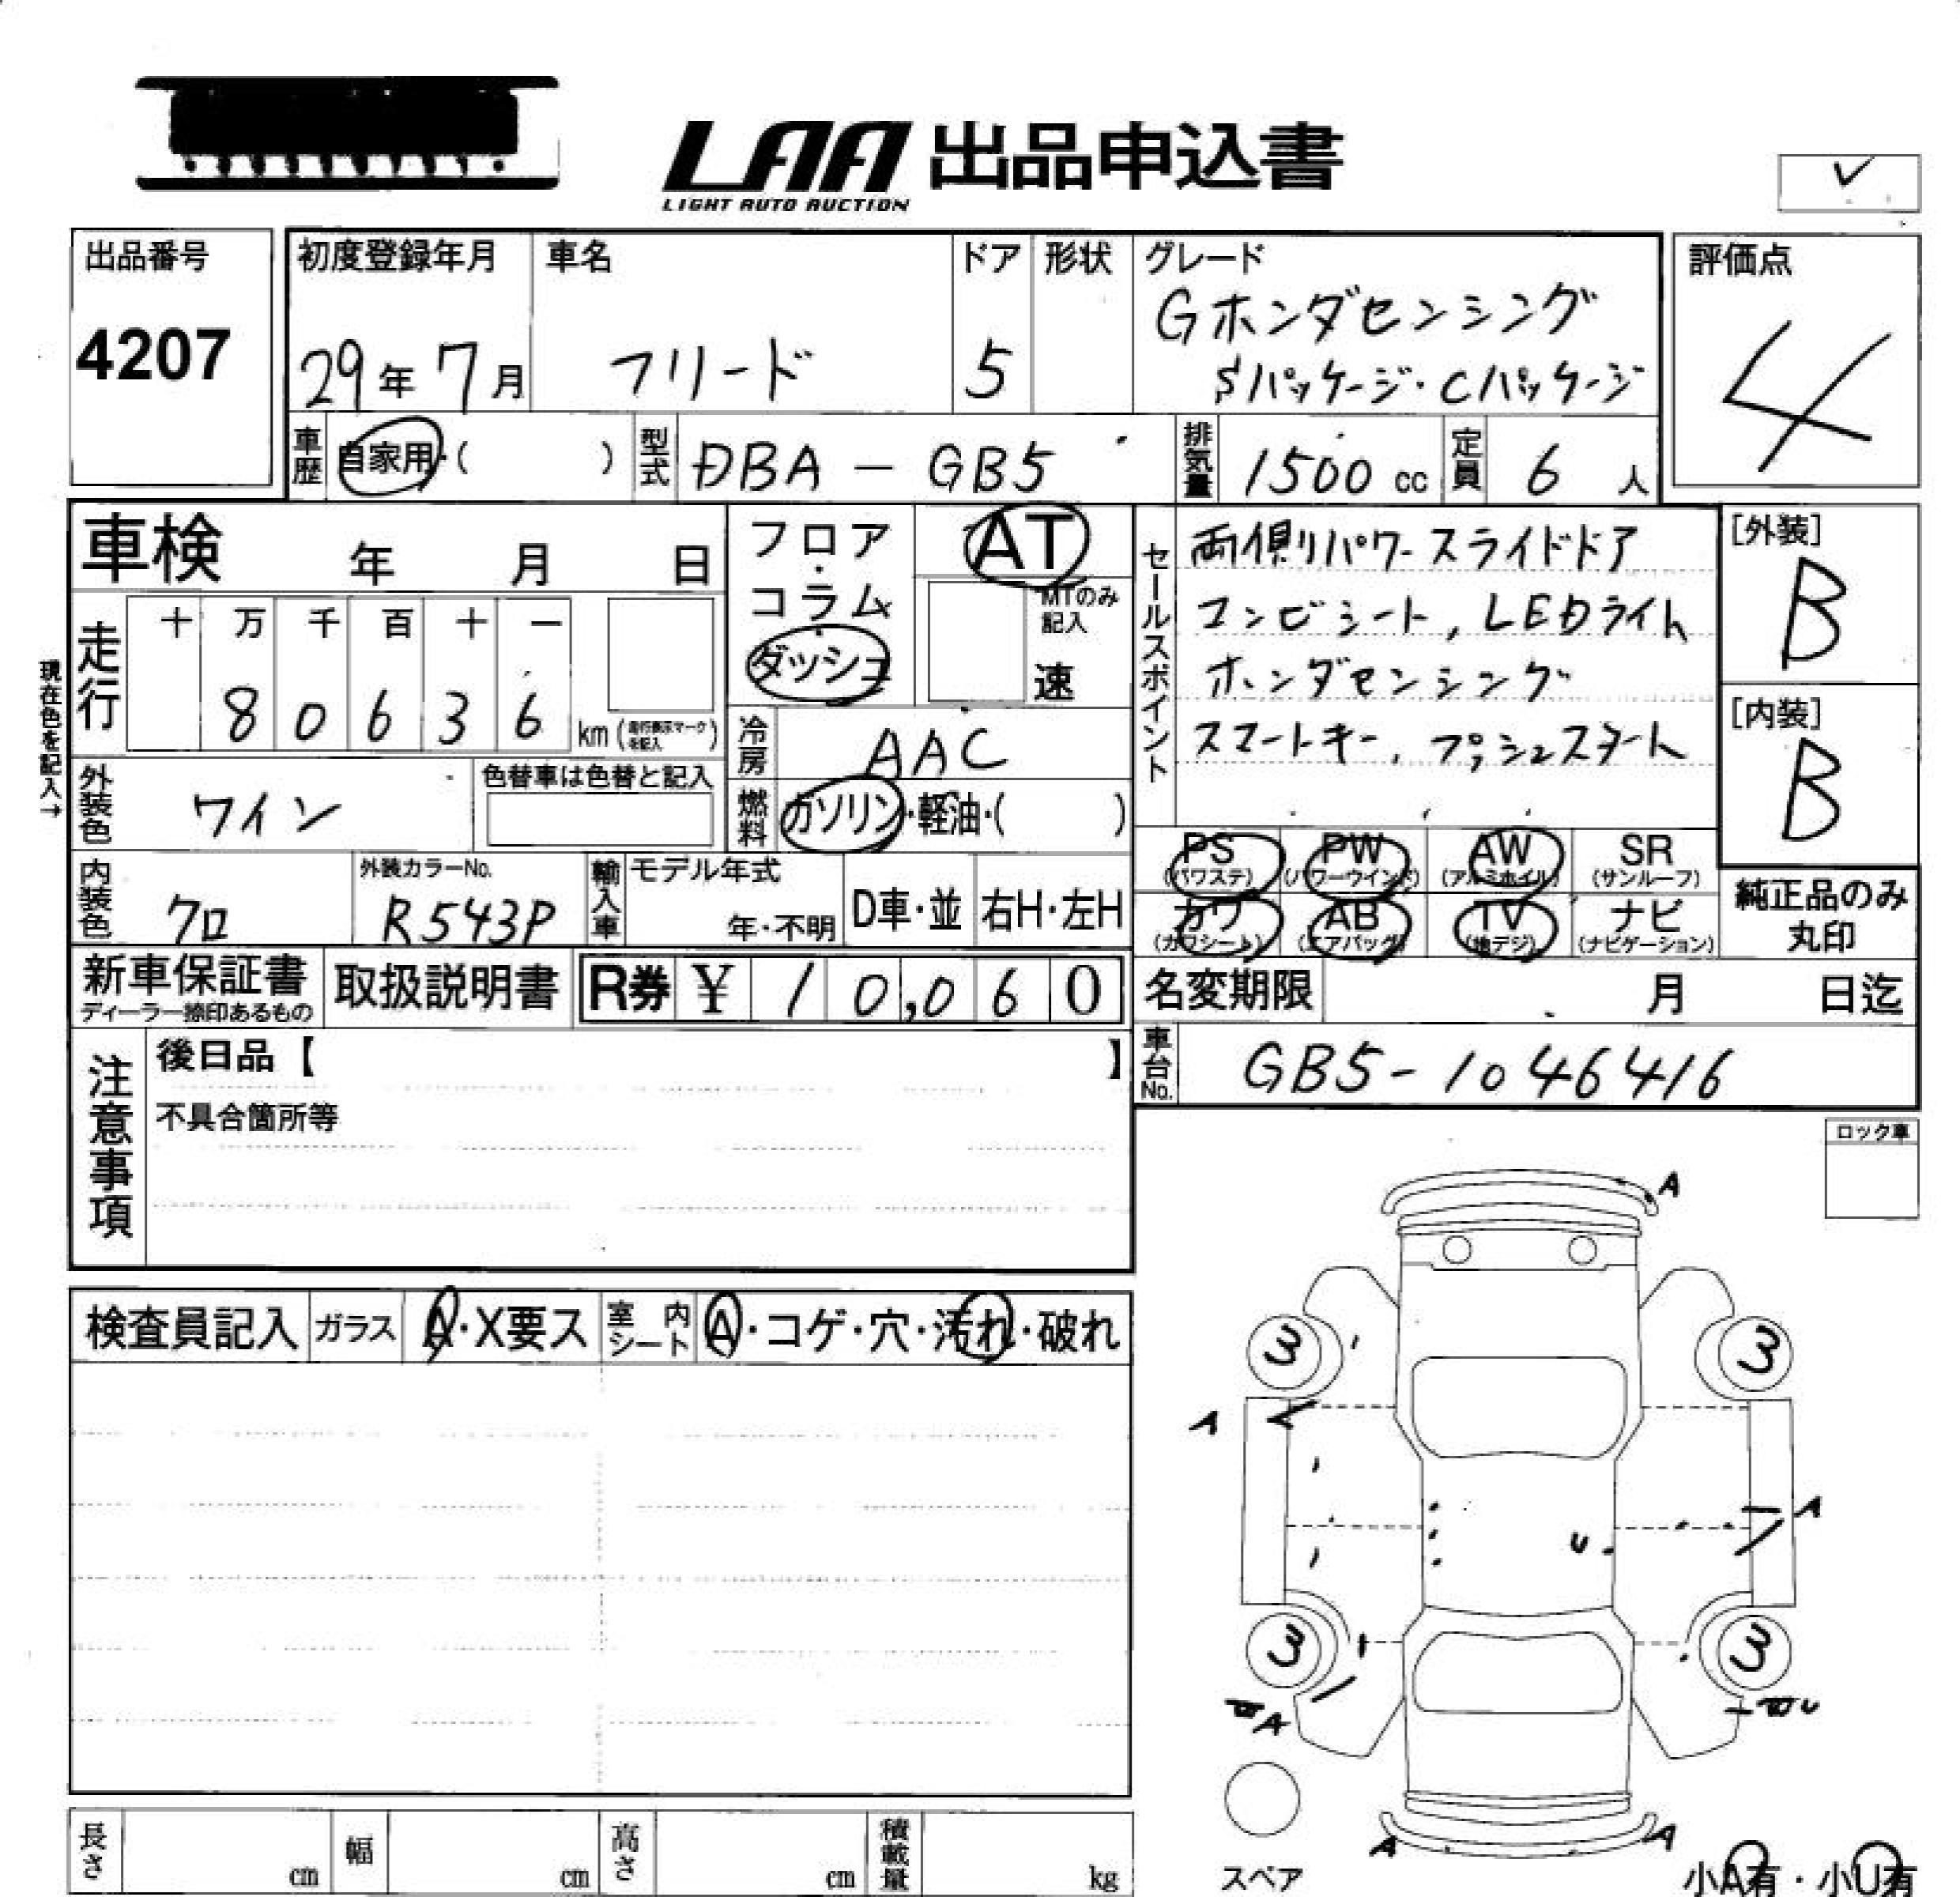 LAA 出品申込書
LIGHT AUTO AUCTION
出品番号
4207
初度登録年月
29年7月
車名
フリード
ドア
5
形状
グレード
Gホンダセンシング
Sパッケージ・Cパッケージ
評価点
4
車歴
自家用・( )
型式
DBA-GB5
排気量
1500 cc
定員
6 人
車検 年 月 日
走行
十 万 千 百 十 一
8 0 6 3 6 km (走行表示マークを記入)
現在色を記入→
外装色
ワイン
色替車は色替と記入
内装色
クロ
外装カラーNo.
R543P
フロア・コラム・ダッシュ
AT
MTのみ記入
速
冷房
AAC
燃料
ガソリン・軽油・( )
輸入車
モデル年式
年・不明
D車・並
右H・左H
セールスポイント
両側パワースライドドア
コンビシート, LEDライト
ホンダセンシング
スマートキー, プッシュスタート
[外装]
B
[内装]
B
PS (パワステ)
PW (パワーウインド)
AW (アルミホイル)
SR (サンルーフ)
カワ (カワシート)
AB (エアバッグ)
TV (地デジ)
ナビ (ナビゲーション)
純正品のみ丸印
新車保証書
ディーラー捺印あるもの
取扱説明書
R券 ¥ 10,060
名変期限 月 日迄
車台No.
GB5-1046416
注意事項
後日品【 】
不具合箇所等
ロック車
検査員記入
ガラス
A・X要ス
室内シート
A・コゲ・穴・汚れ・破れ
A
3 3
A
A
U
3 3
A
U
A A
スペア
小A有・小U有
長さ cm
幅 cm
高さ cm
積載量 kg